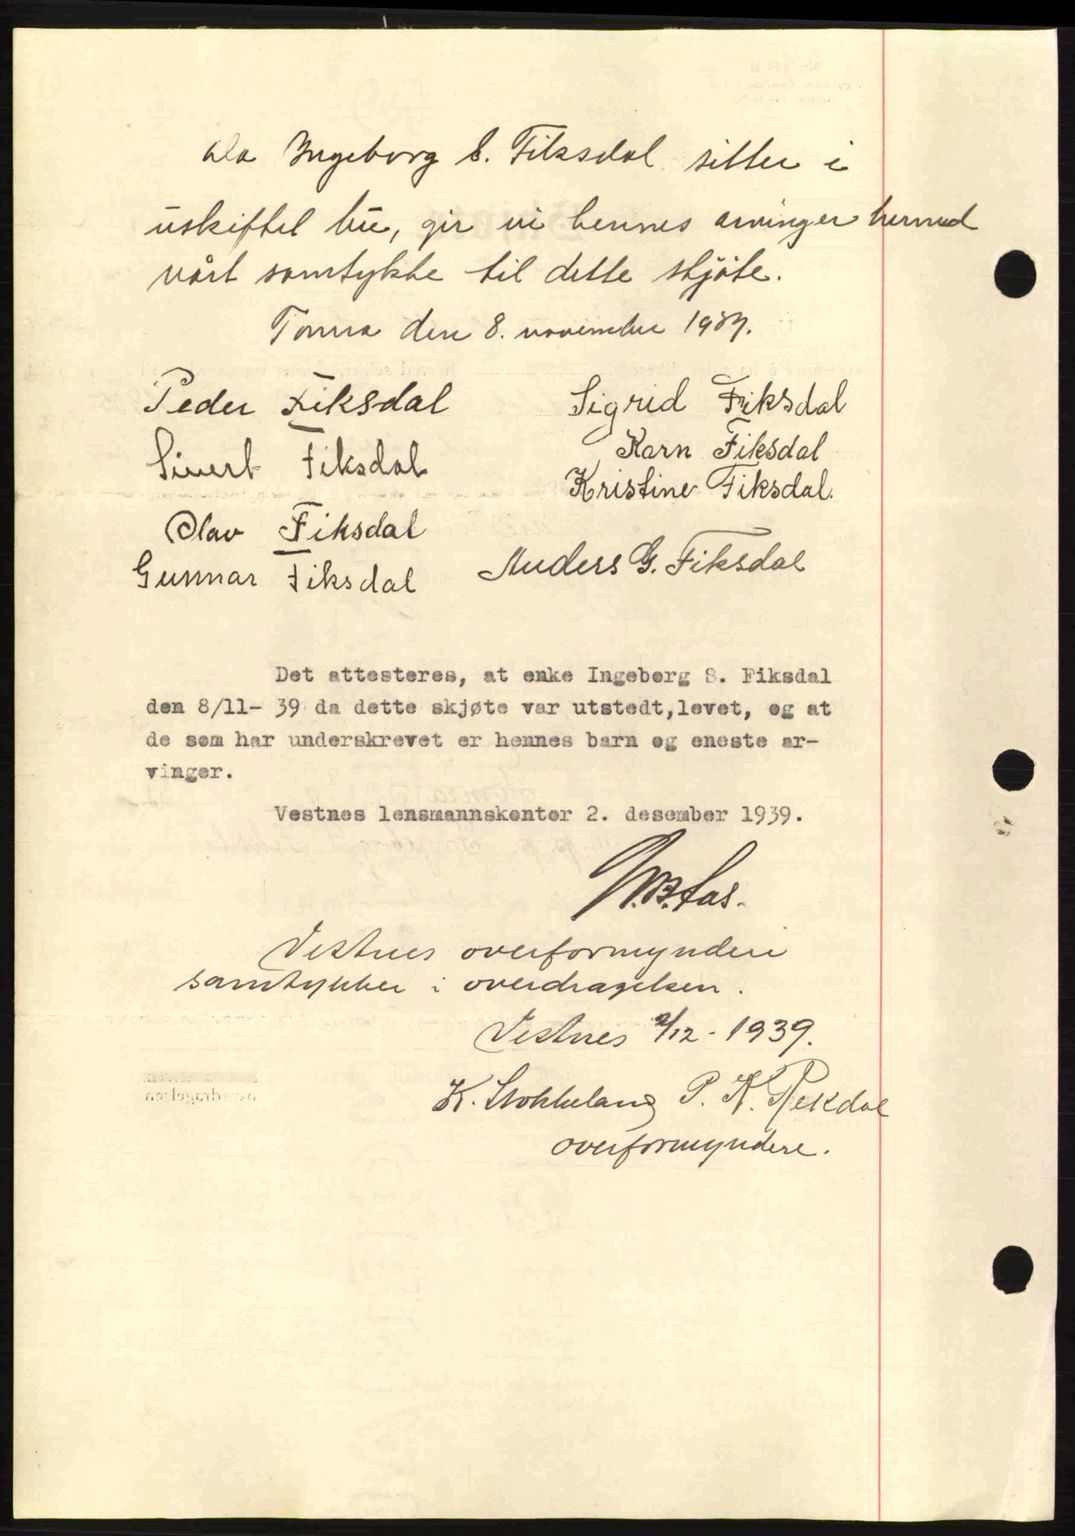 da Ingeborg S. Fiksdal sitter i
uskiftet bu, gir vi hennes arvinger hermed
vårt samtykke til dette skjøte.
Tomra den 8. november 1939.
Peder Fiksdal Sigrid Fiksdal
Sivert Fiksdal Karn Fiksdal
Kristine Fiksdal.
Olav Fiksdal
Gunnar Fiksdal Anders G. Fiksdal
Det attesteres, at enke Ingeborg S. Fiksdal
den 8/11- 39 da dette skjøte var utstedt, levet, og at
de som har underskrevet er hennes barn og eneste ar-
vinger.
Vestnes lensmannskontor 2. desember 1939.
Vestnes overformynderi
samtykker i overdragelsen.
Vestnes 2/12 - 1939.
K. Stokkeland P. K. Rekdal
overformyndere.